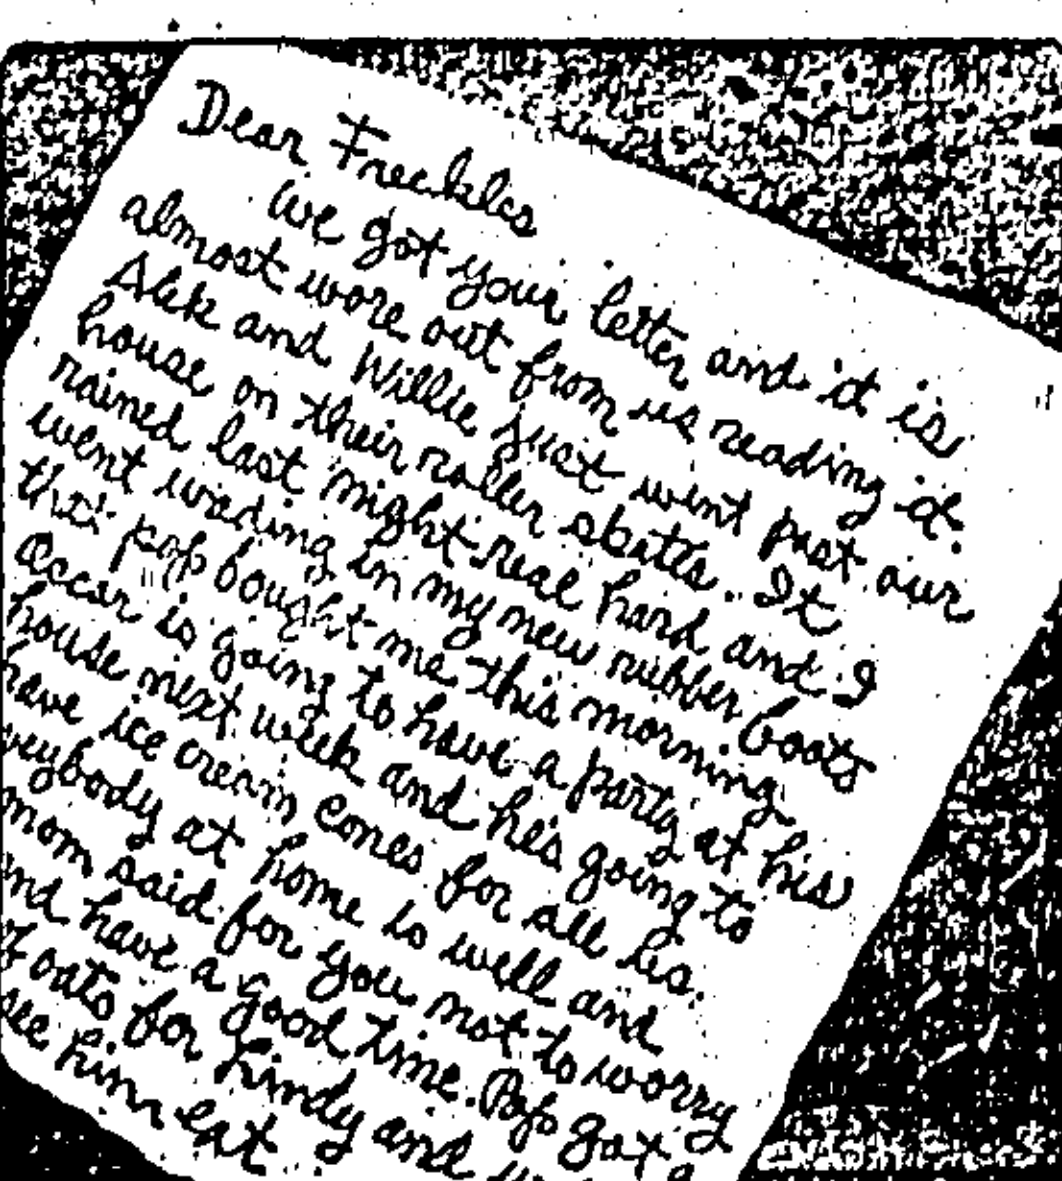 Dear Freckles
We got your letter and it is
almost wore out from us reading it.
Alek and Willie just went past our
house on their roller skates. It
rained last night real hard and I
went wading in my new rubber boots
that pop bought me this morning.
Oscar is going to have a party at his
house next week and he's going to
have ice cream cones for all his.
verybody at home is well and
mom said for you not to worry
and have a good time. Pop got a
of oats for Lindy and
see him eat